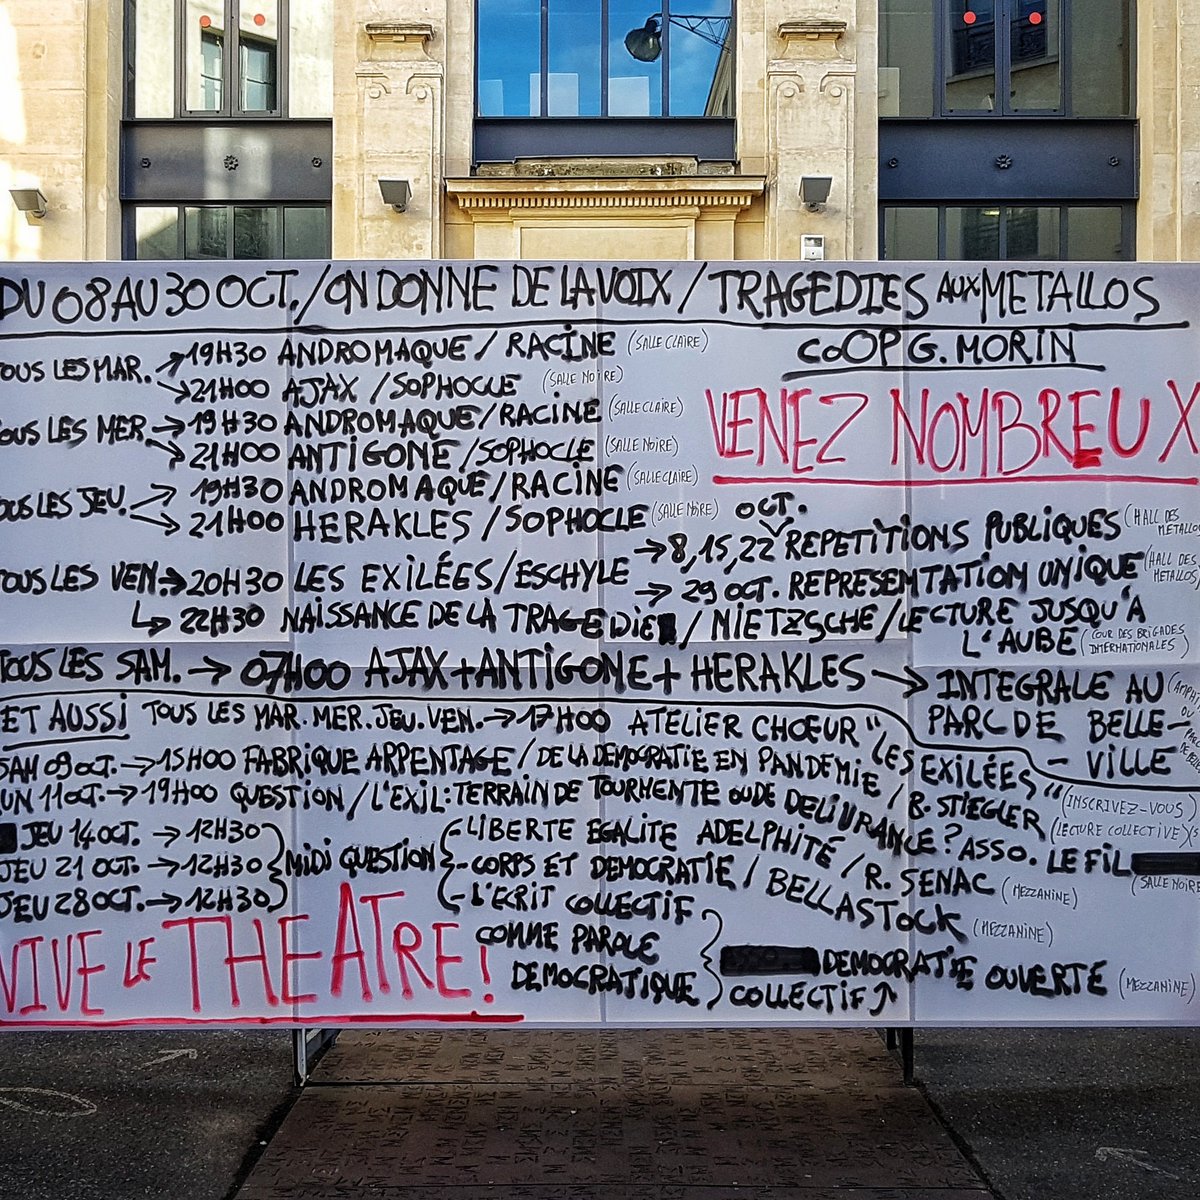 DU 08 AU 30 OCT. / ON DONNE DE LA VOIX / TRAGEDIES AUX METALLOS
COOP G. MORIN
VENEZ NOMBREUX
OUS LES MAR. → 19H30 ANDROMAQUE / RACINE (SALLE CLAIRE)
→ 21H00 AJAX / SOPHOCLE (SALLE NOIRE)
OUS LES MER → 19H30 ANDROMAQUE / RACINE (SALLE CLAIRE)
→ 21H00 ANTIGONE / SOPHOCLE (SALLE NOIRE)
OUS LES JEU. → 19H30 ANDROMAQUE / RACINE (SALLE CLAIRE)
→ 21H00 HERAKLES / SOPHOCLE (SALLE NOIRE)
TOUS LES VEN. → 20H30 LES EXILÉES / ESCHYLE → 8, 15, 22 OCT. REPETITIONS PUBLIQUES (HALL DES METALLOS
→ 29 OCT. REPRESENTATION UNIQUE (HALL DES METALLOS)
↳ 22H30 NAISSANCE DE LA TRAGEDIE / NIETZSCHE / LECTURE JUSQU'A L'AUBE (COUR DES BRIGADES INTERNATIONALES)
TOUS LES SAM. → 07H00 AJAX + ANTIGONE + HERAKLES → INTEGRALE AU PARC DE BELLE-
- VILLE
ET AUSSI TOUS LES MAR. MER. JEU. VEN. → 17H00 ATELIER CHŒUR "LES EXILÉES" (INSCRIVEZ-VOUS)
SAM 09 OCT. → 15H00 FABRIQUE ARPENTAGE / DE LA DEMOCRATIE EN PANDEMIE / B. STIEGLER (LECTURE COLLECTIVE)
UN 11 OCT. → 19H00 QUESTION / L'EXIL : TERRAIN DE TOURMENTE OU DE DELIVRANCE ? ASSO. LE FIL (SALLE NOIRE
JEU 14 OCT. → 12H30
JEU 21 OCT. → 12H30
JEU 28 OCT. → 12H30
MIDI QUESTION
- LIBERTE EGALITE ADELPHITE / R. SENAC (MEZZANINE)
- CORPS ET DEMOCRATIE / BELLASTOCK (MEZZANINE)
- L'ECRIT COLLECTIF
COMME PAROLE
DEMOCRATIQUE
DEMOCRATIE OUVERTE (MEZZANINE)
COLLECTIF ↑
VIVE LE THEATRE !